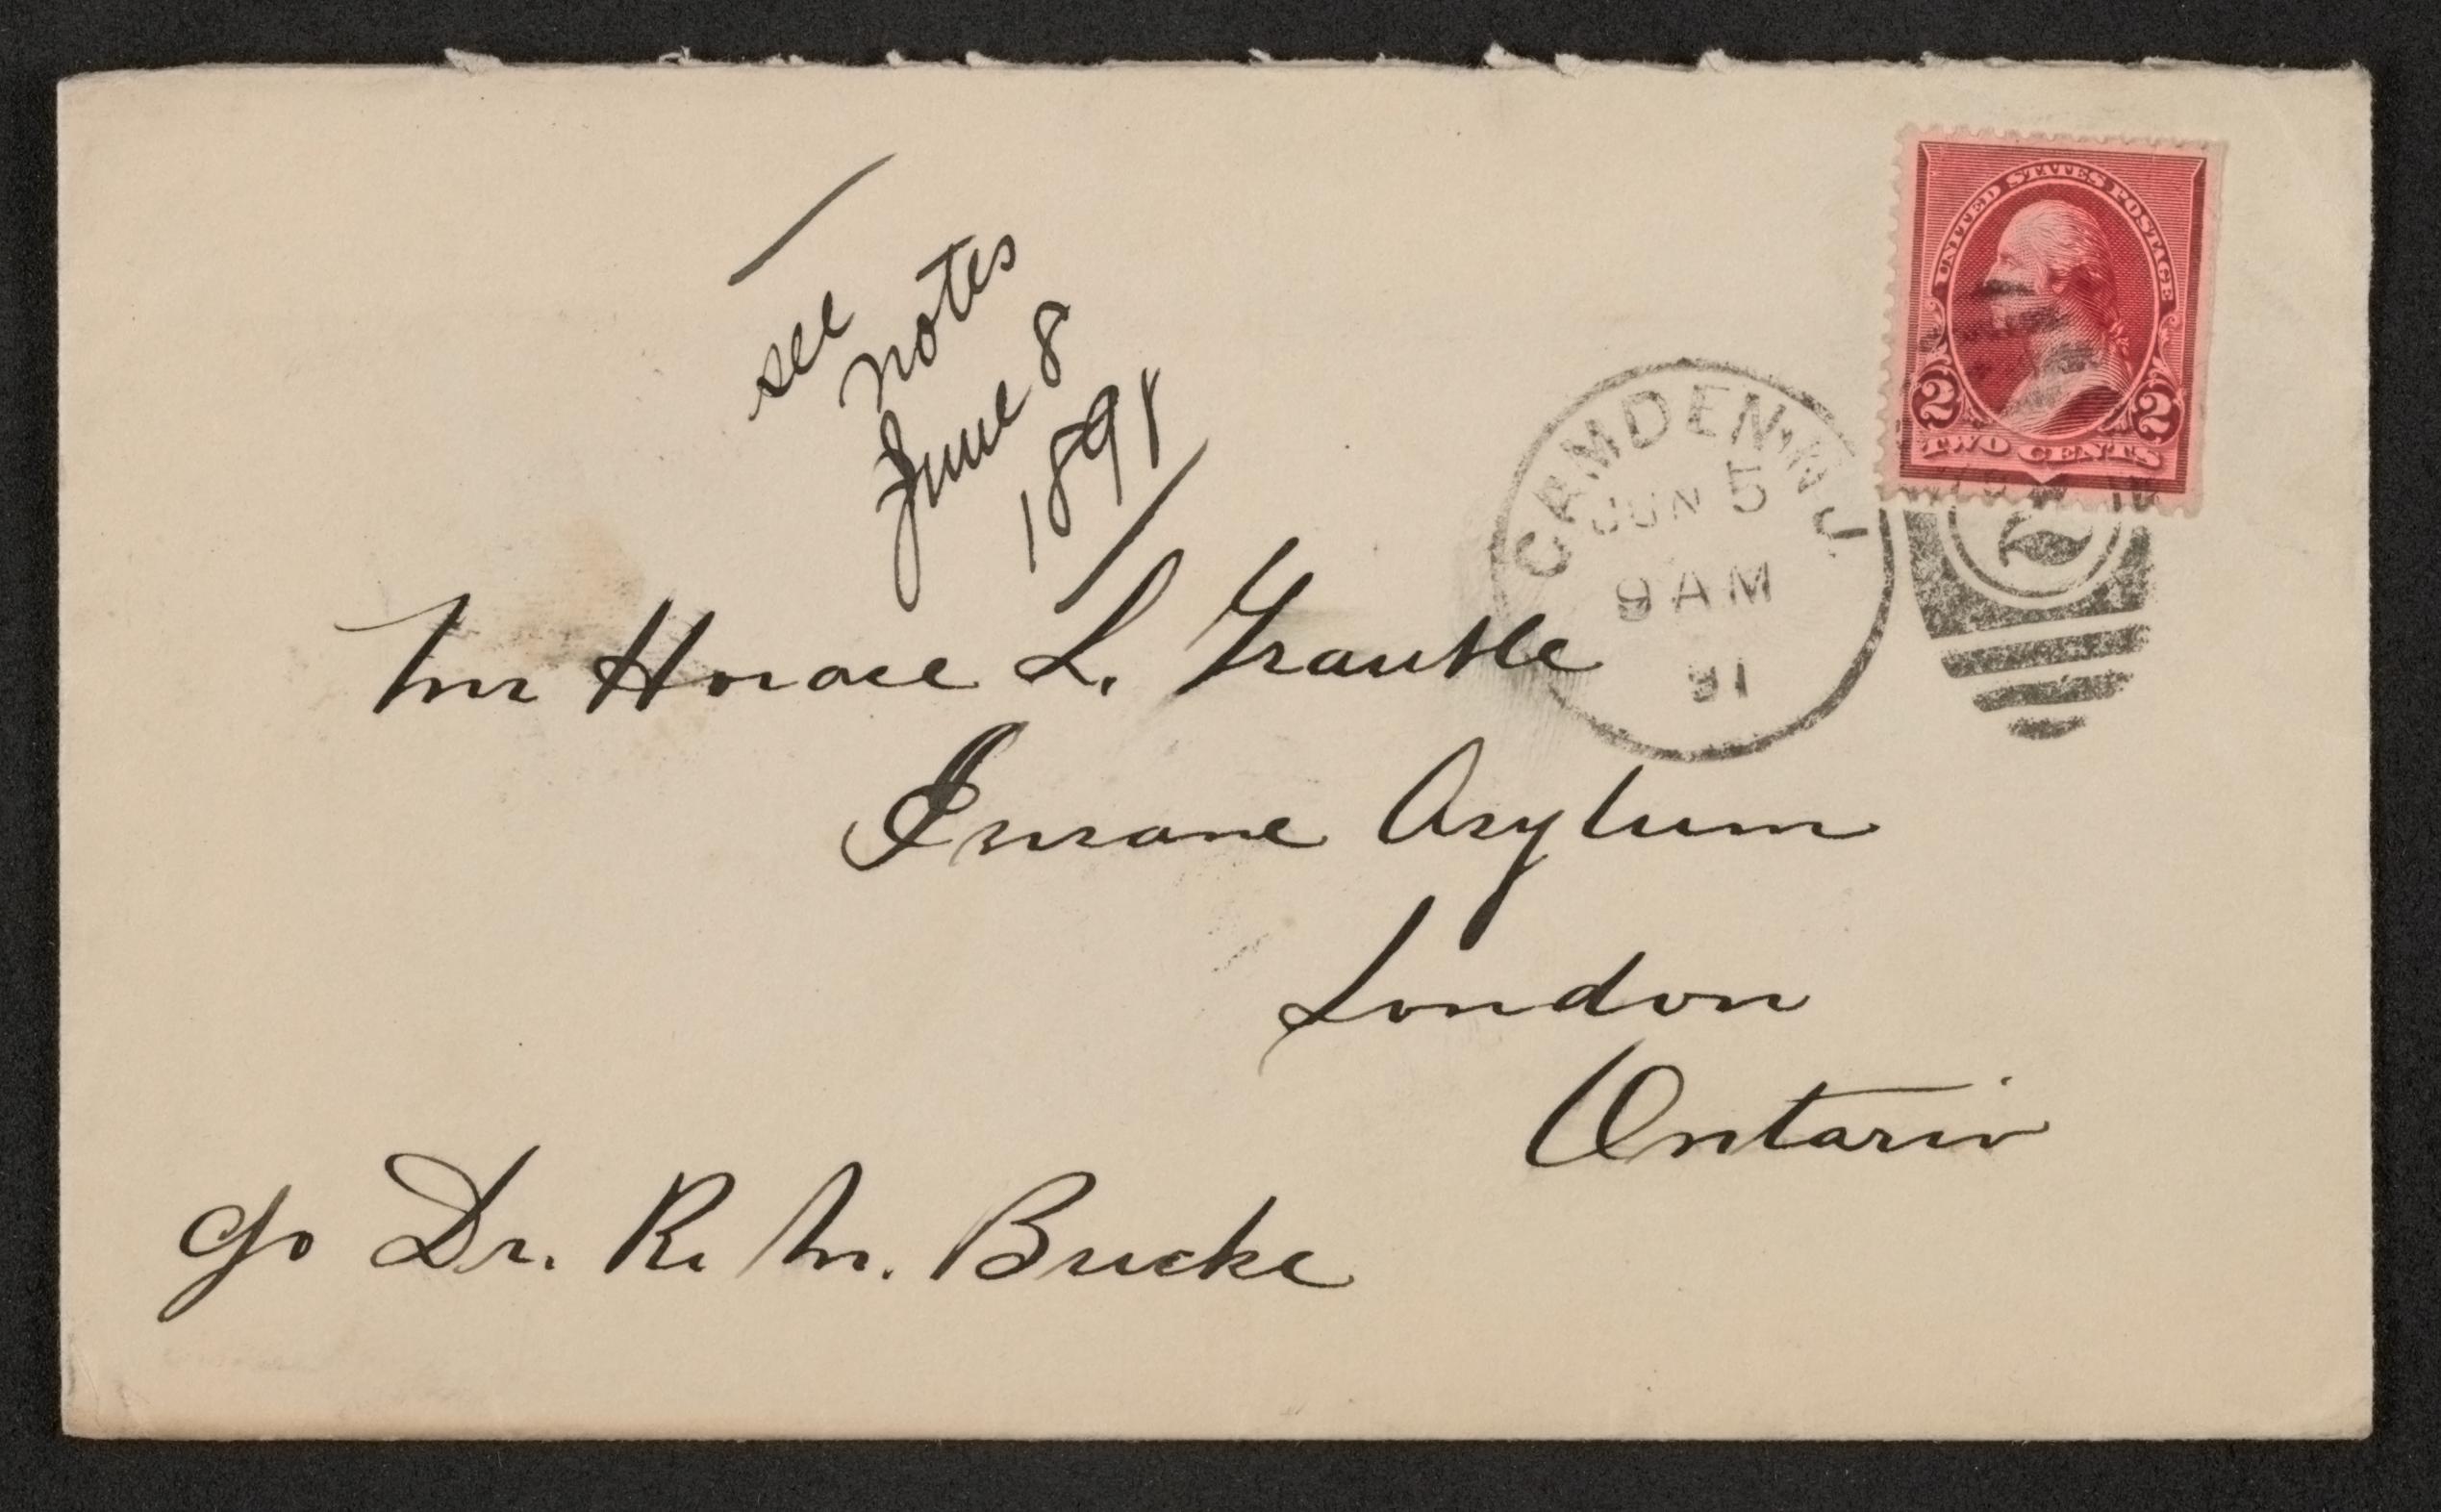 see
notes
June 8
1891
UNITED STATES POSTAGE
2 2
TWO CENTS
CAMDEN, N.J.
JUN 5
9 AM
91
2
Mr Horace L. Traubel
Insane Asylum
London
Ontario
c/o Dr. R. M. Bucke